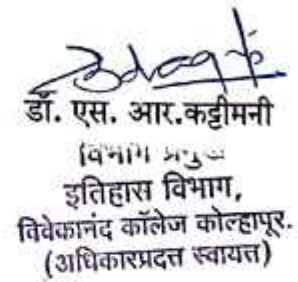 डॉ. एस. आर.कट्टीमनी
विभाग प्रमुख
इतिहास विभाग,
विवेकानंद कॉलेज कोल्हापूर.
(अधिकारप्रदत्त स्वायत्त)